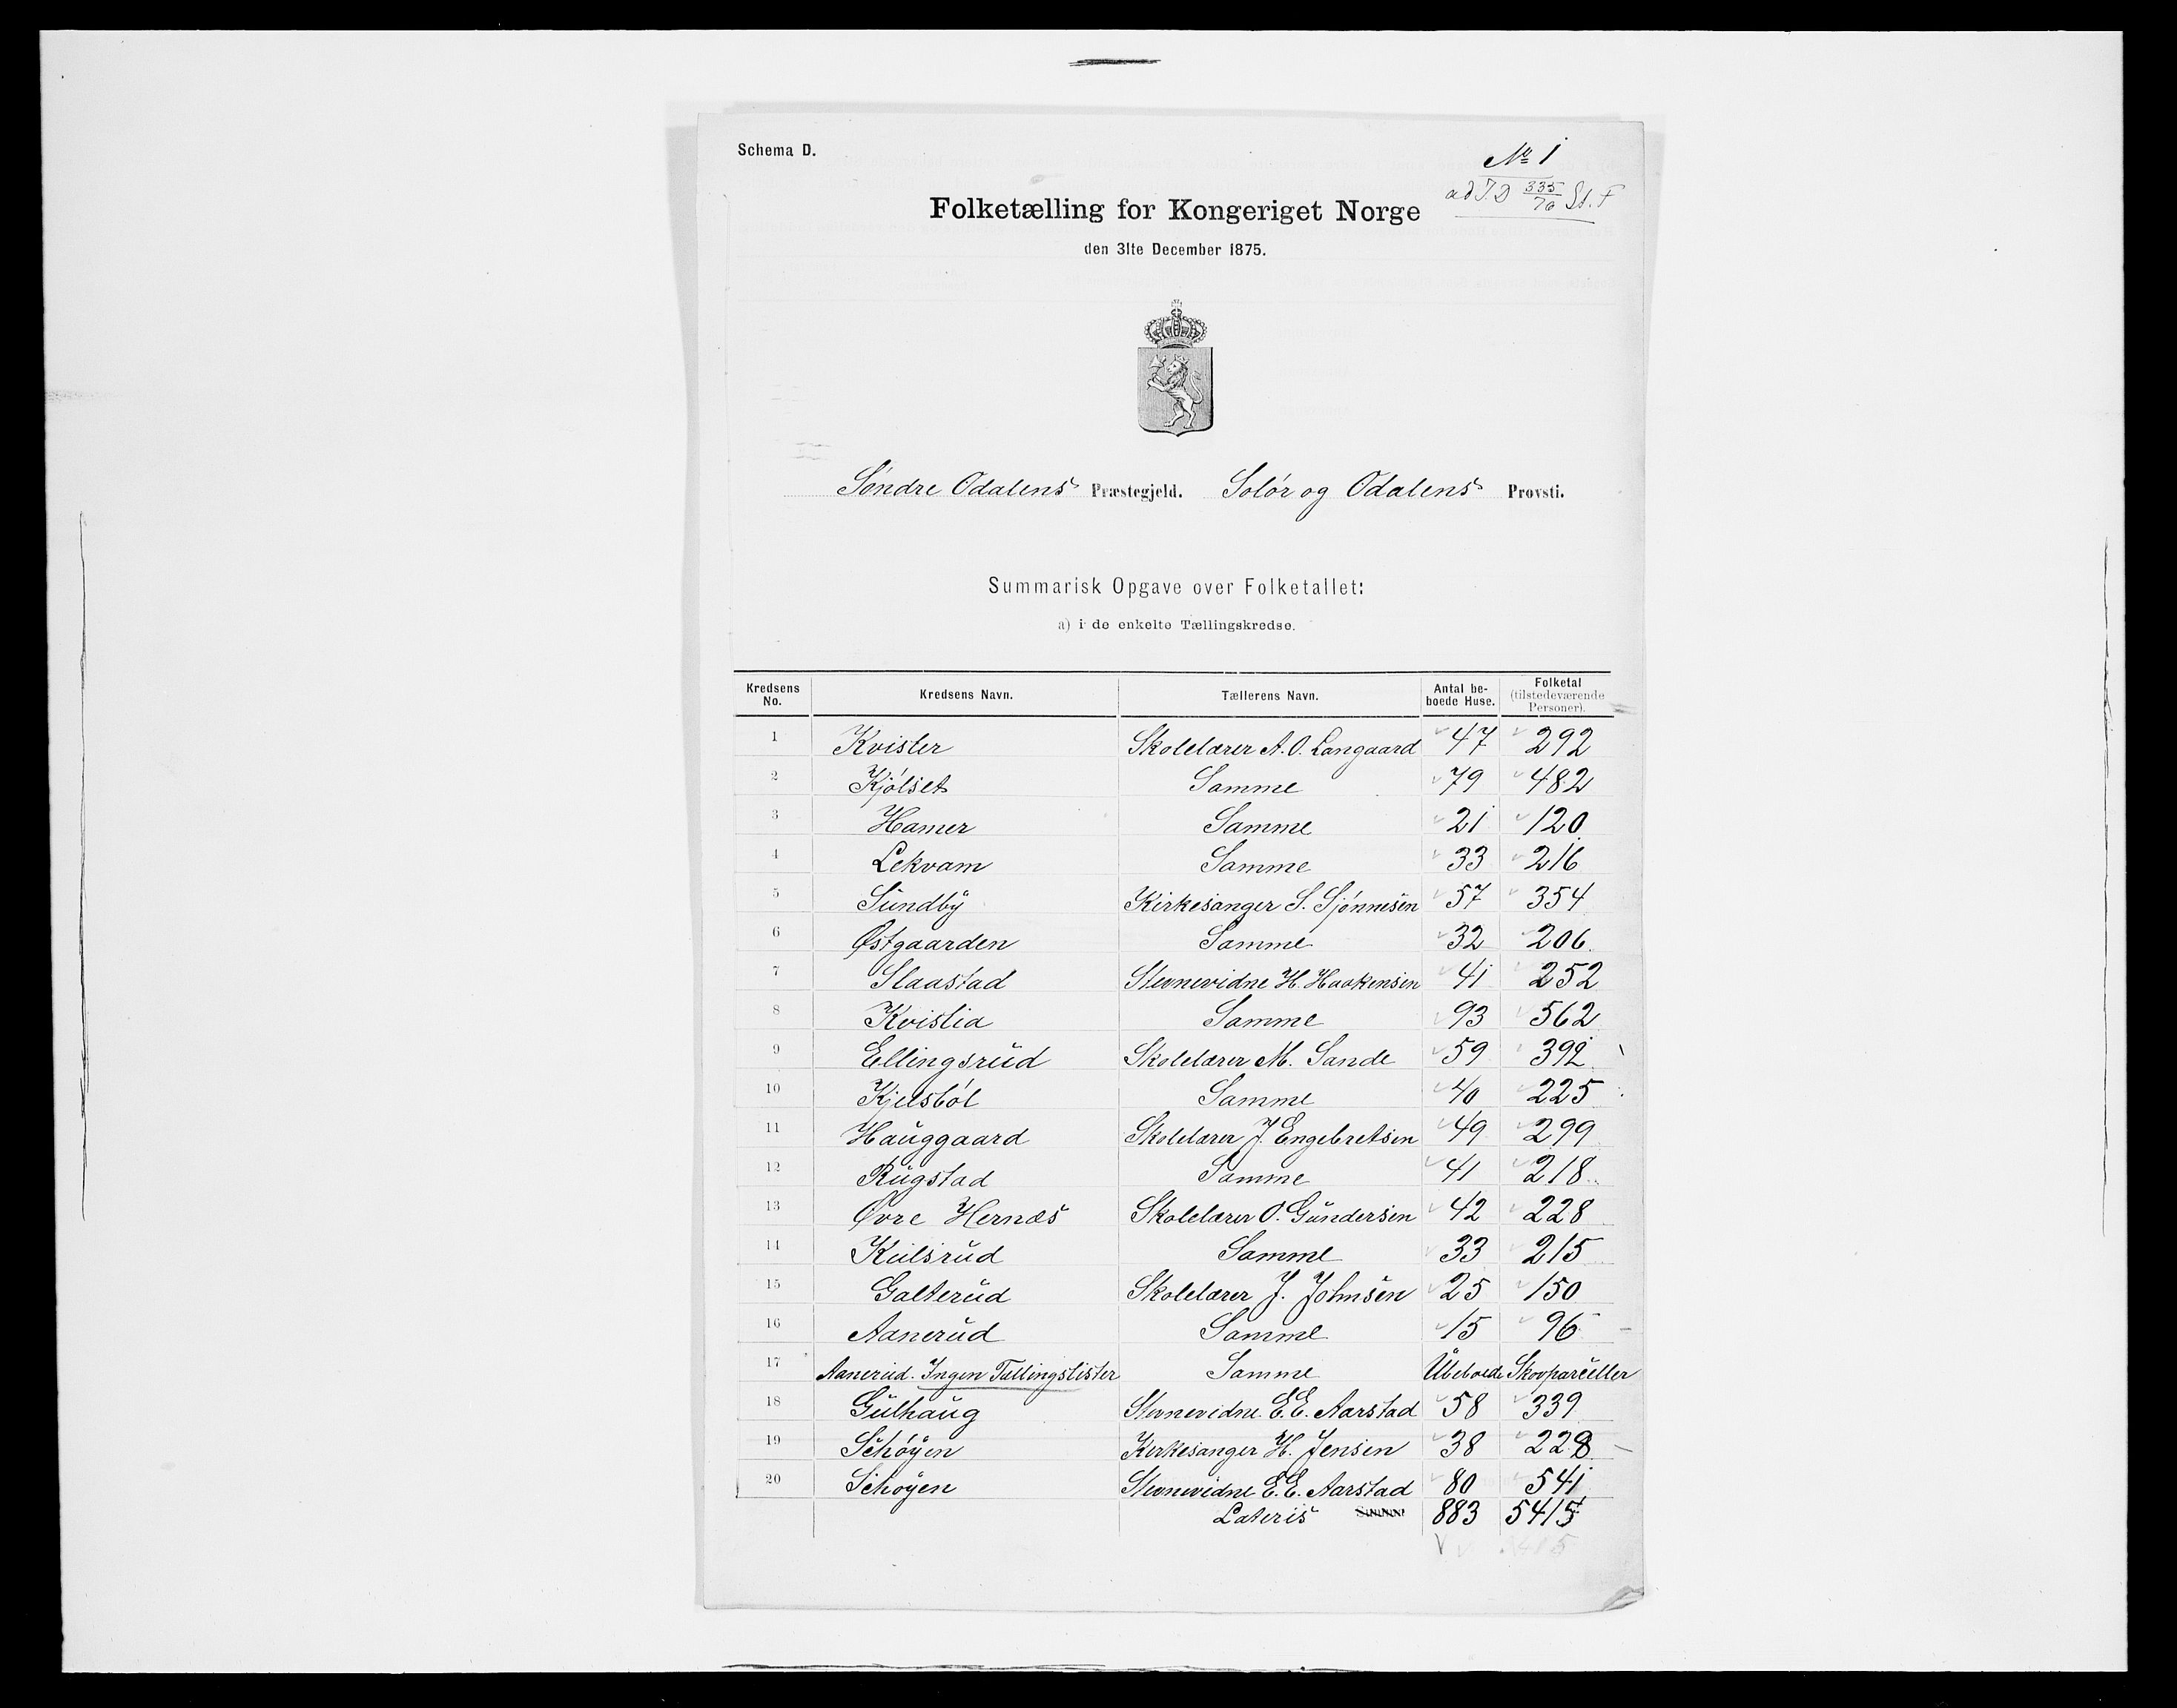 Schema D.
№ 1
ad J.D 335/76 St. F
Folketælling for Kongeriget Norge
den 31te December 1875.
Søndre Odalens Præstegjeld. Solør og Odalens Provsti.
Summarisk Opgave over Folketallet:
a) i de enkelte Tællingskredse.
Kredsens No. Kredsens Navn. Tællerens Navn. Antal beboede Huse. Folketal (tilstedeværende Personer).
1 Kvisler Skolelærer A. O. Langaard 47 292
2 Kjölset Samme 79 482
3 Hamer Samme 21 120
4 Lekvam Samme 33 216
5 Sundby Kirkesanger S. Sjönnesen 57 354
6 Østgaarden Samme 32 206
7 Slaastad Stevnevidne H. Haakensen 41 252
8 Kvislia Samme 93 562
9 Ellingsrud Skolelærer M. Sande 59 392
10 Kjelsböl Samme 40 225
11 Hauggaard Skolelærer J. Engebretsen 49 299
12 Rugstad Samme 41 218
13 Øvre Hernæs Skolelærer O. Gundersen 42 228
14 Kulsrud Samme 33 215
15 Galterud Skolelærer J. Johnsen 25 150
16 Aanerud Samme 15 96
17 Aanerud. Ingen Tællingslister Samme Ubeboede Skovparceller
18 Gulhaug Stevnevidne E. E. Aarstad 58 339
19 Schöyen Kirkesanger H. Jensen 38 228
20 Schöyen Stevnevidne E. E. Aarstad 80 541
Lateris 883 5415